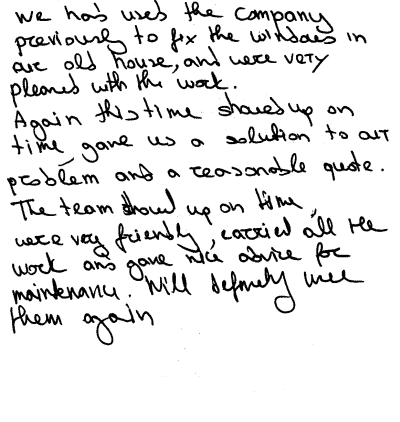 We had used the company
previously to fix the windows in
our old house, and were very
pleased with the work.
Again this time showed up on
time, gave us a solution to our
problem and a reasonable quote.
The team showed up on time,
were very friendly, carried all the
work and gave nice advice for
maintenance. Will definetly use
them again